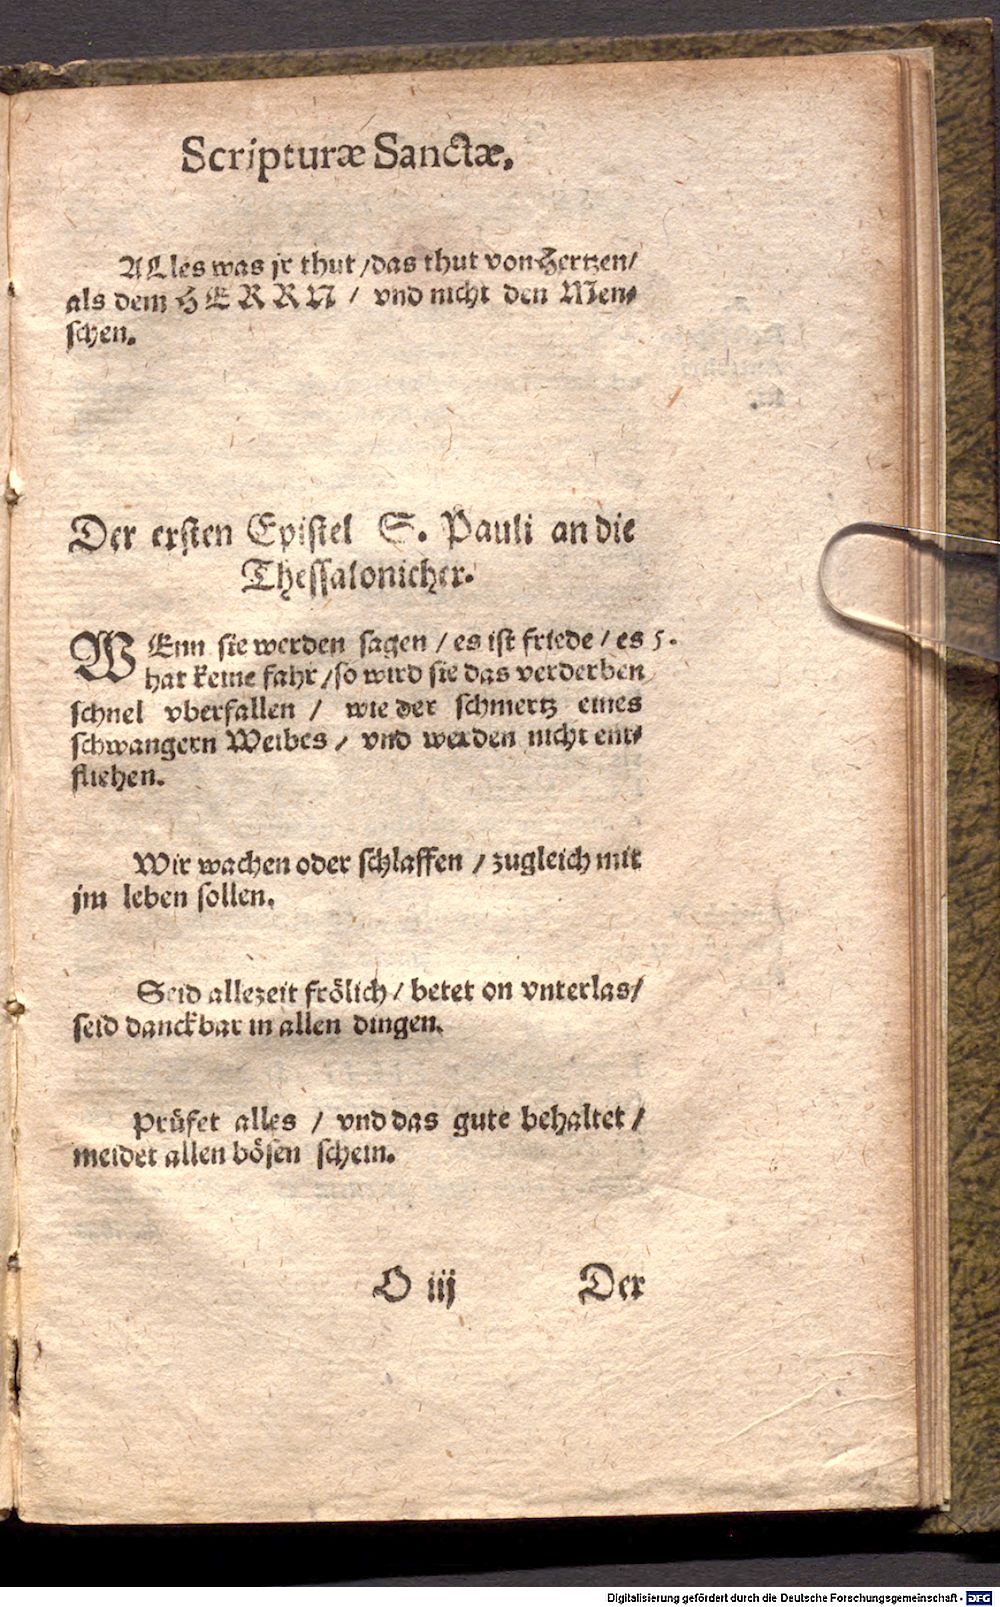 Scripturæ Sanctæ.
ALles was jr thut / das thut von Hertzen /
als dem HERRN / vnd nicht den Men⸗
schen.
Der ersten Epistel S. Pauli an die
Thessalonicher.
WEnn sie werden sagen / es ist friede / es 5.
hat keine fahr / so wird sie das verderben
schnel vberfallen / wie der schmertz eines
schwangern Weibes / vnd werden nicht ent⸗
fliehen.
Wir wachen oder schlaffen / zugleich mit
jm leben sollen.
Seid allezeit frölich / betet on vnterlas /
seid danckbar in allen dingen.
Prüfet alles / vnd das gute behaltet /
meidet allen bösen schein.
O iij Der
Digitalisierung gefördert durch die Deutsche Forschungsgemeinschaft - DFG